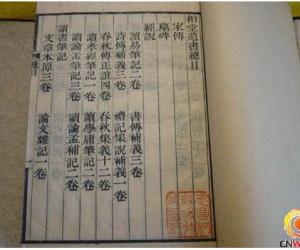 柏堂遺書總目
家傳
墓碑
經說
讀易筆記二卷　書傳補義三卷
詩傳補義三卷　禮記集說補義一卷
春秋傳正誼四卷　春秋集義十二卷
讀孝經筆記一卷　讀學庸筆記二卷
讀論孟筆記三卷　讀論孟補記二卷
讀書筆記
文章本原三卷　論文雜記一卷
CNW